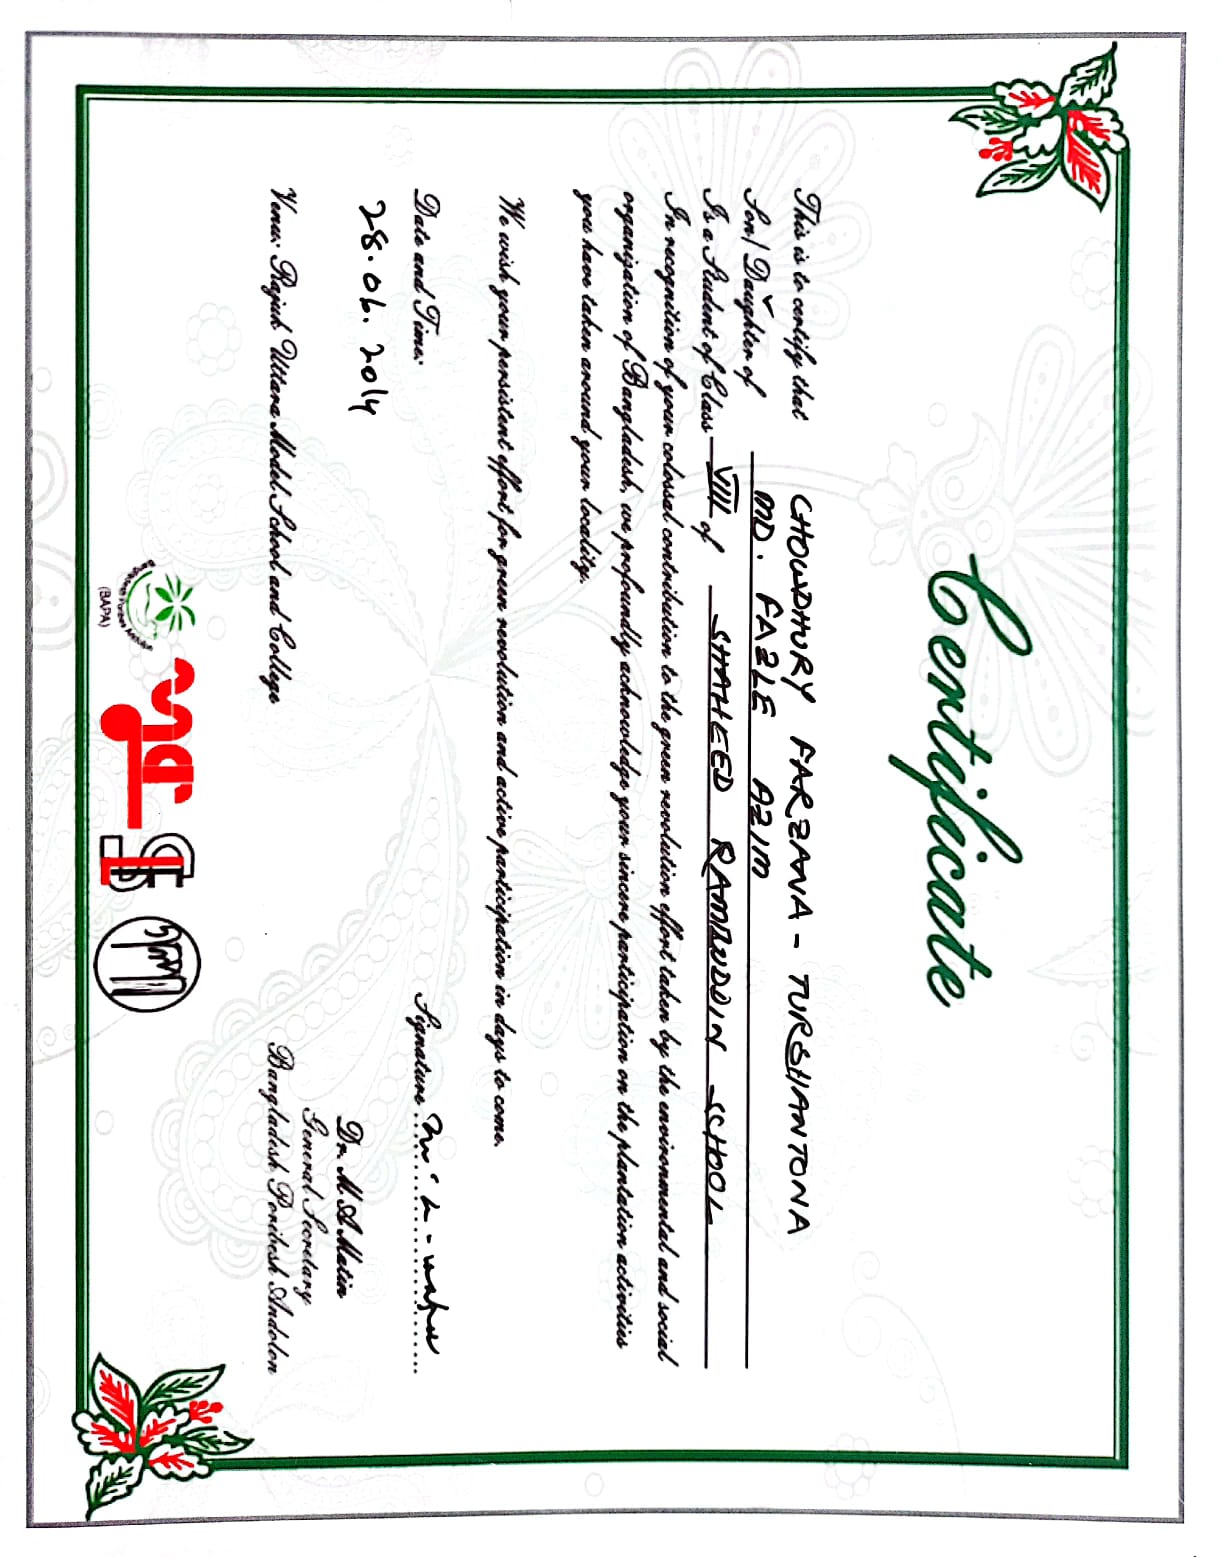 Certificate
This is to certify that CHOWDHURY FARZANA - TURSHANTONA
Son/ Daughter of MD. FAZLE AZIM
Is a Student of Class VIII of SHAHEED RAMIZUDDIN SCHOOL
In recognition of your colossal contribution to the green revolution effort taken by the environmental and social
organization of Bangladesh, we profoundly acknowledge your sincere participation on the plantation activities
you have taken around your locality.
We wish your persistent effort for green revolution and active participation in days to come.
Date and Time:
28.06.2014
Signature
Dr. M A Matin
General Secretary
Bangladesh Poribesh Andolon
Venu: Rajuk Uttara Model School and College
Bangladesh Poribes Andolon
(BAPA)